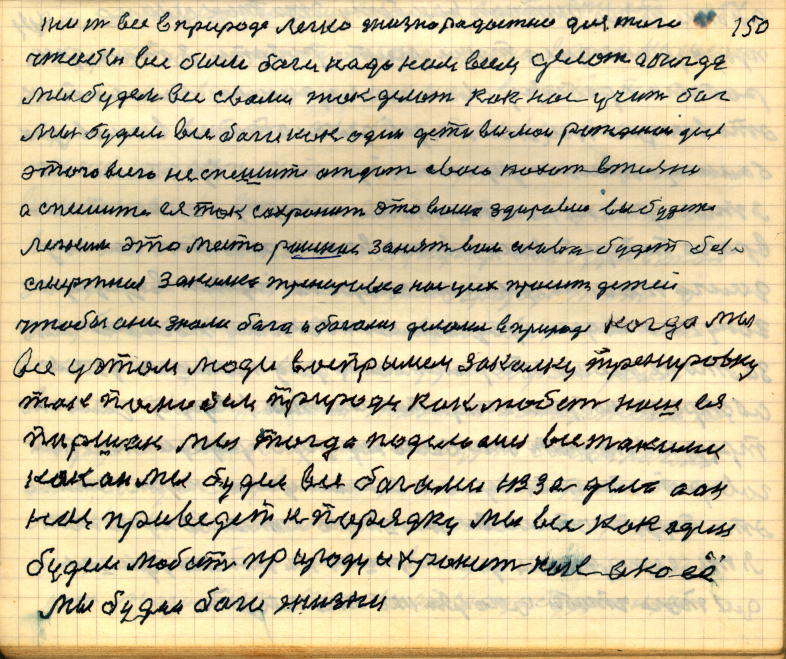 жит все в природе легко жизнорадостно для того 150
чтобы все были боги надо нам всем делат а когда
мы будем все свами так делат как нас учит бог
мы будем все боги как один дети вы мои рожденои для
этого всего не спешите отдат свою
а спешите ея так сохронит это ваше здоровие вы будете
это место заият вам слава будет без
смертноя закалка тренировка нас усех просит детей
чтобы они знали бога а богами делами в природе когда мы
все у этом люди воспрымем закалку тренировку
так полюбем природу как любет наш ея
паршиак мы тогда поделоами все такими
как он мы будем все богами из за дела он
нас приведет к порядку мы все как один
будем любить природу и хронит как око её
мы будем боги жизни